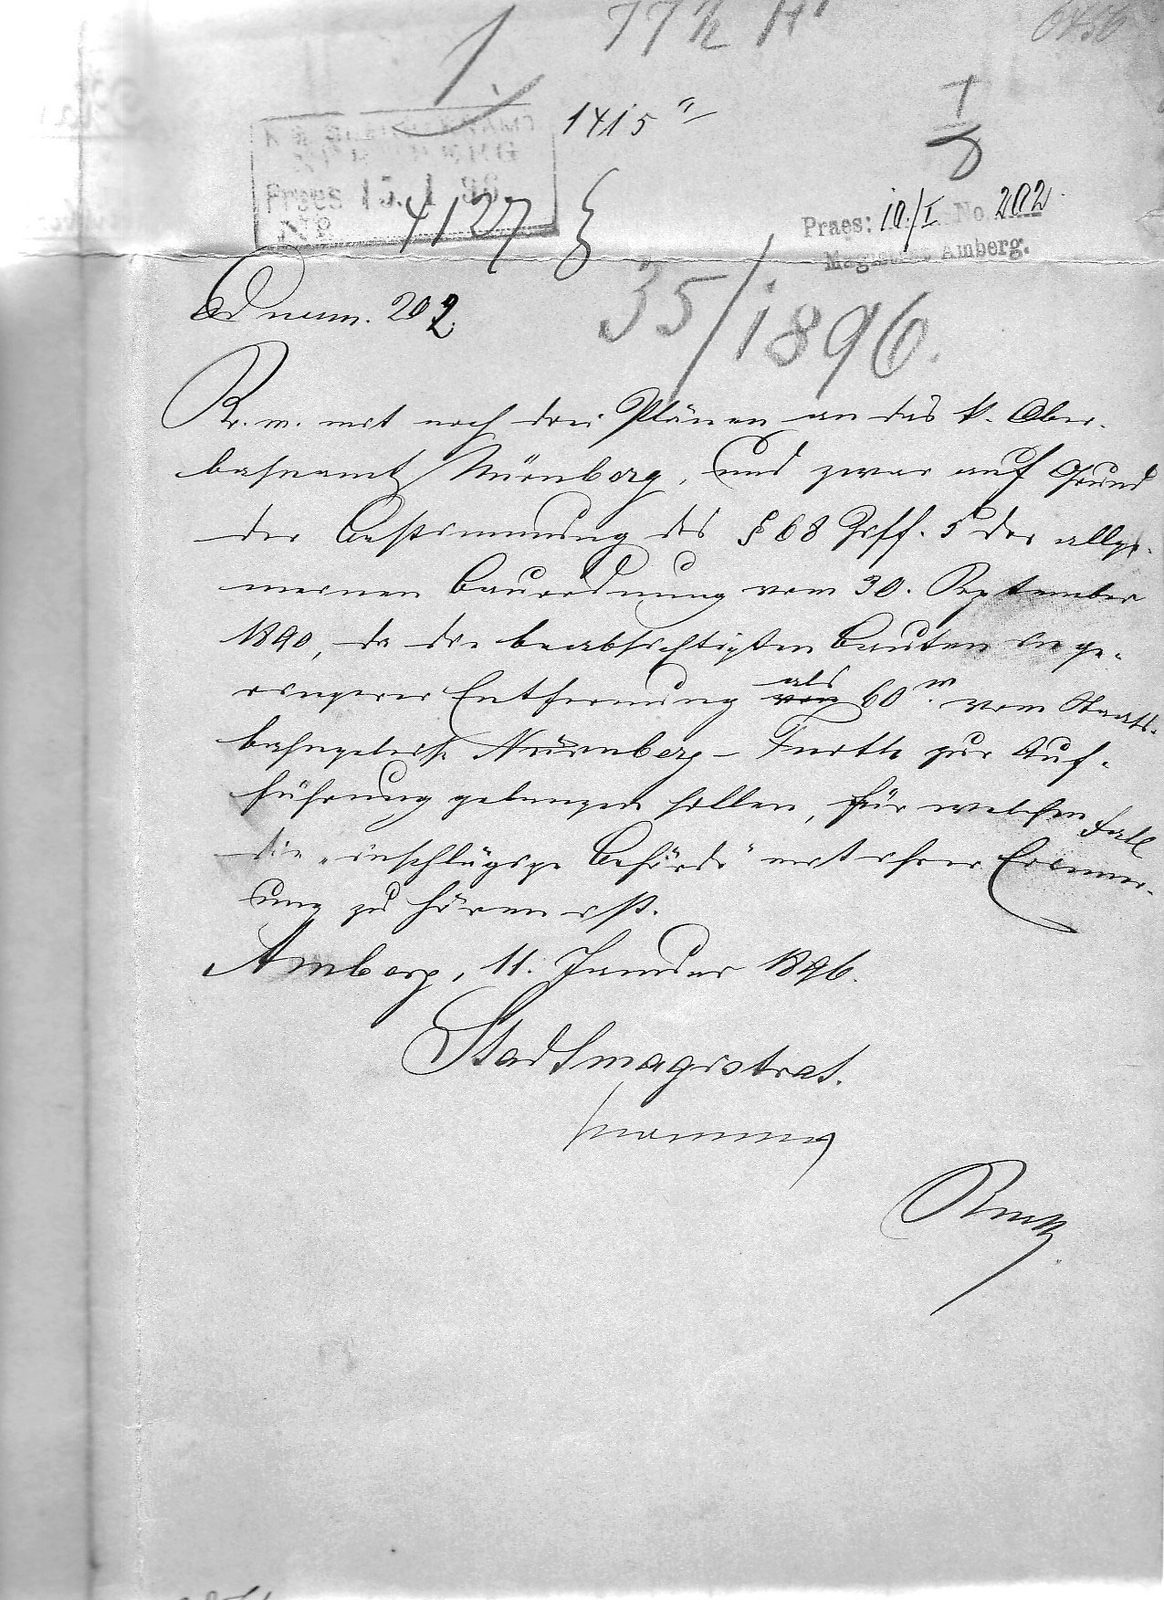 1.
77 1/2
1415 "
I
8
Praes 15. 1 96
No 4127
Praes: 10./I No. 202
Magistrat Amberg.
35/1896.
Ad num. 202.
Br. m. mit noch drei Plänen an das k. Ober-
bahnamt Nürnberg, und zwar auf Grund
der Bestimmung des § 68 Ziff. 5 der allge-
meinen Bauordnung vom 30. September
1890, da die beabsichtigten Bauten in ge-
ringerer Entfernung als 60 m. vom Staats-
bahngeleise Nürnberg – Furth zur Auf-
führung gelangen sollen, für welchen Fall
die „einschlägige Behörde" mit ihrer Erinner-
ung zu hören ist.
Amberg, 11. Januar 1896.
Stadtmagistrat.